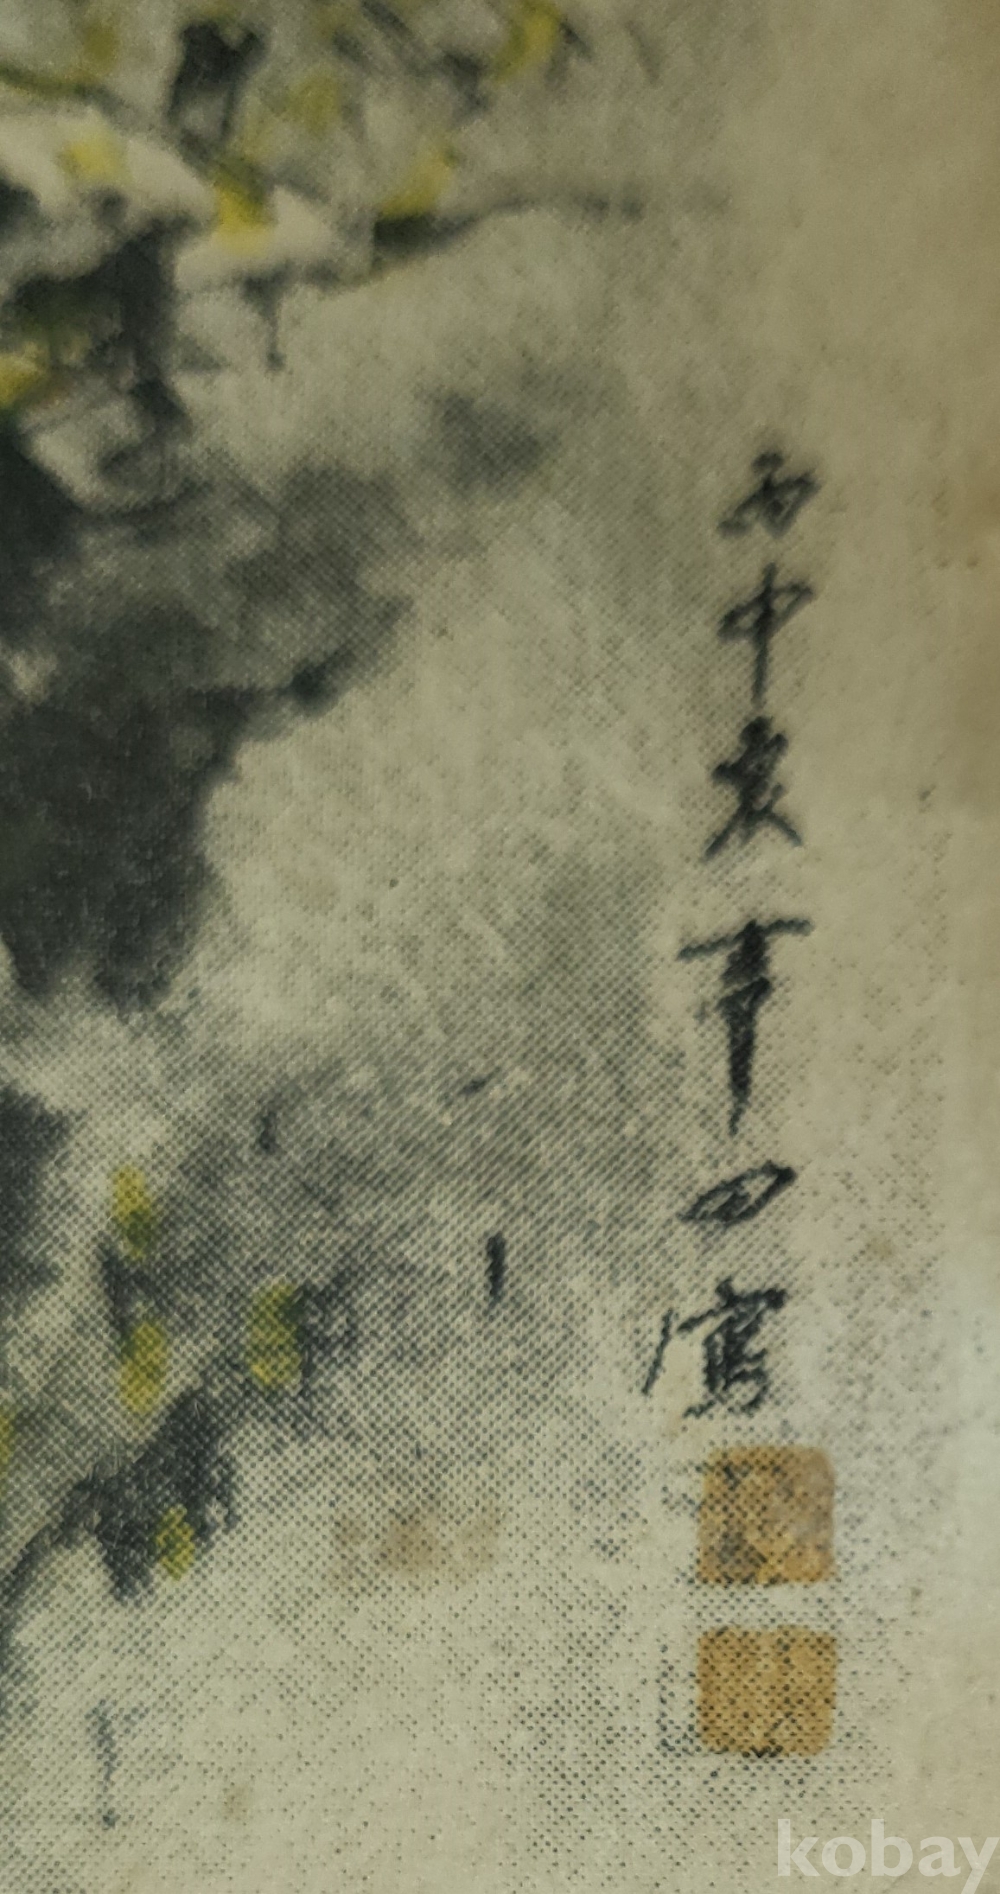 丙申夏 靑田寫
kobay